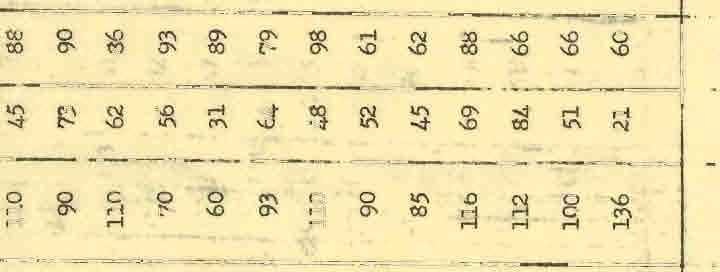 110 45 88
90 73 90
110 62 36
70 56 93
60 31 89
93 64 79
110 48 98
90 52 61
85 45 62
116 69 88
112 84 66
100 51 66
136 21 60